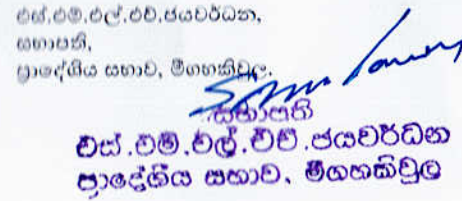 එස්.එම්.එල්.එච්.ජයවර්ධන,
සභාපති,
ප්‍රාදේශීය සභාව, මීගහකිවුල.
සභාපති
එස්.එම්.එල්.එච්.ජයවර්ධන
ප්‍රාදේශීය සභාව, මීගහකිවුල